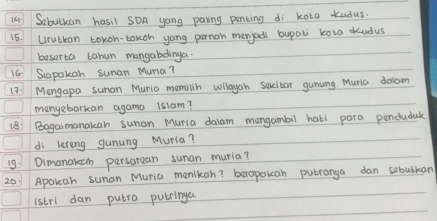 14. Sebutkan hasil SDA yang paling penting di kota kudus.
15. Urutkan tokoh-tokoh yang pernah menjadi bupati kota kudus
beserta tahun mengabdinya.
16. Siapakah Sunan Muria?
17. Mengapa sunan Muria memilih wilayah sekitar gunung Muria dalam
menyebarkan agama Islam?
18. Bagaimanakah sunan Muria dalam mengambil hati para penduduk
di lereng gunung Muria?
19. Dimanakah pesarean sunan muria?
20. Apakah sunan Muria menikah? berapakah putranya dan sebutkan
istri dan putra putrinya